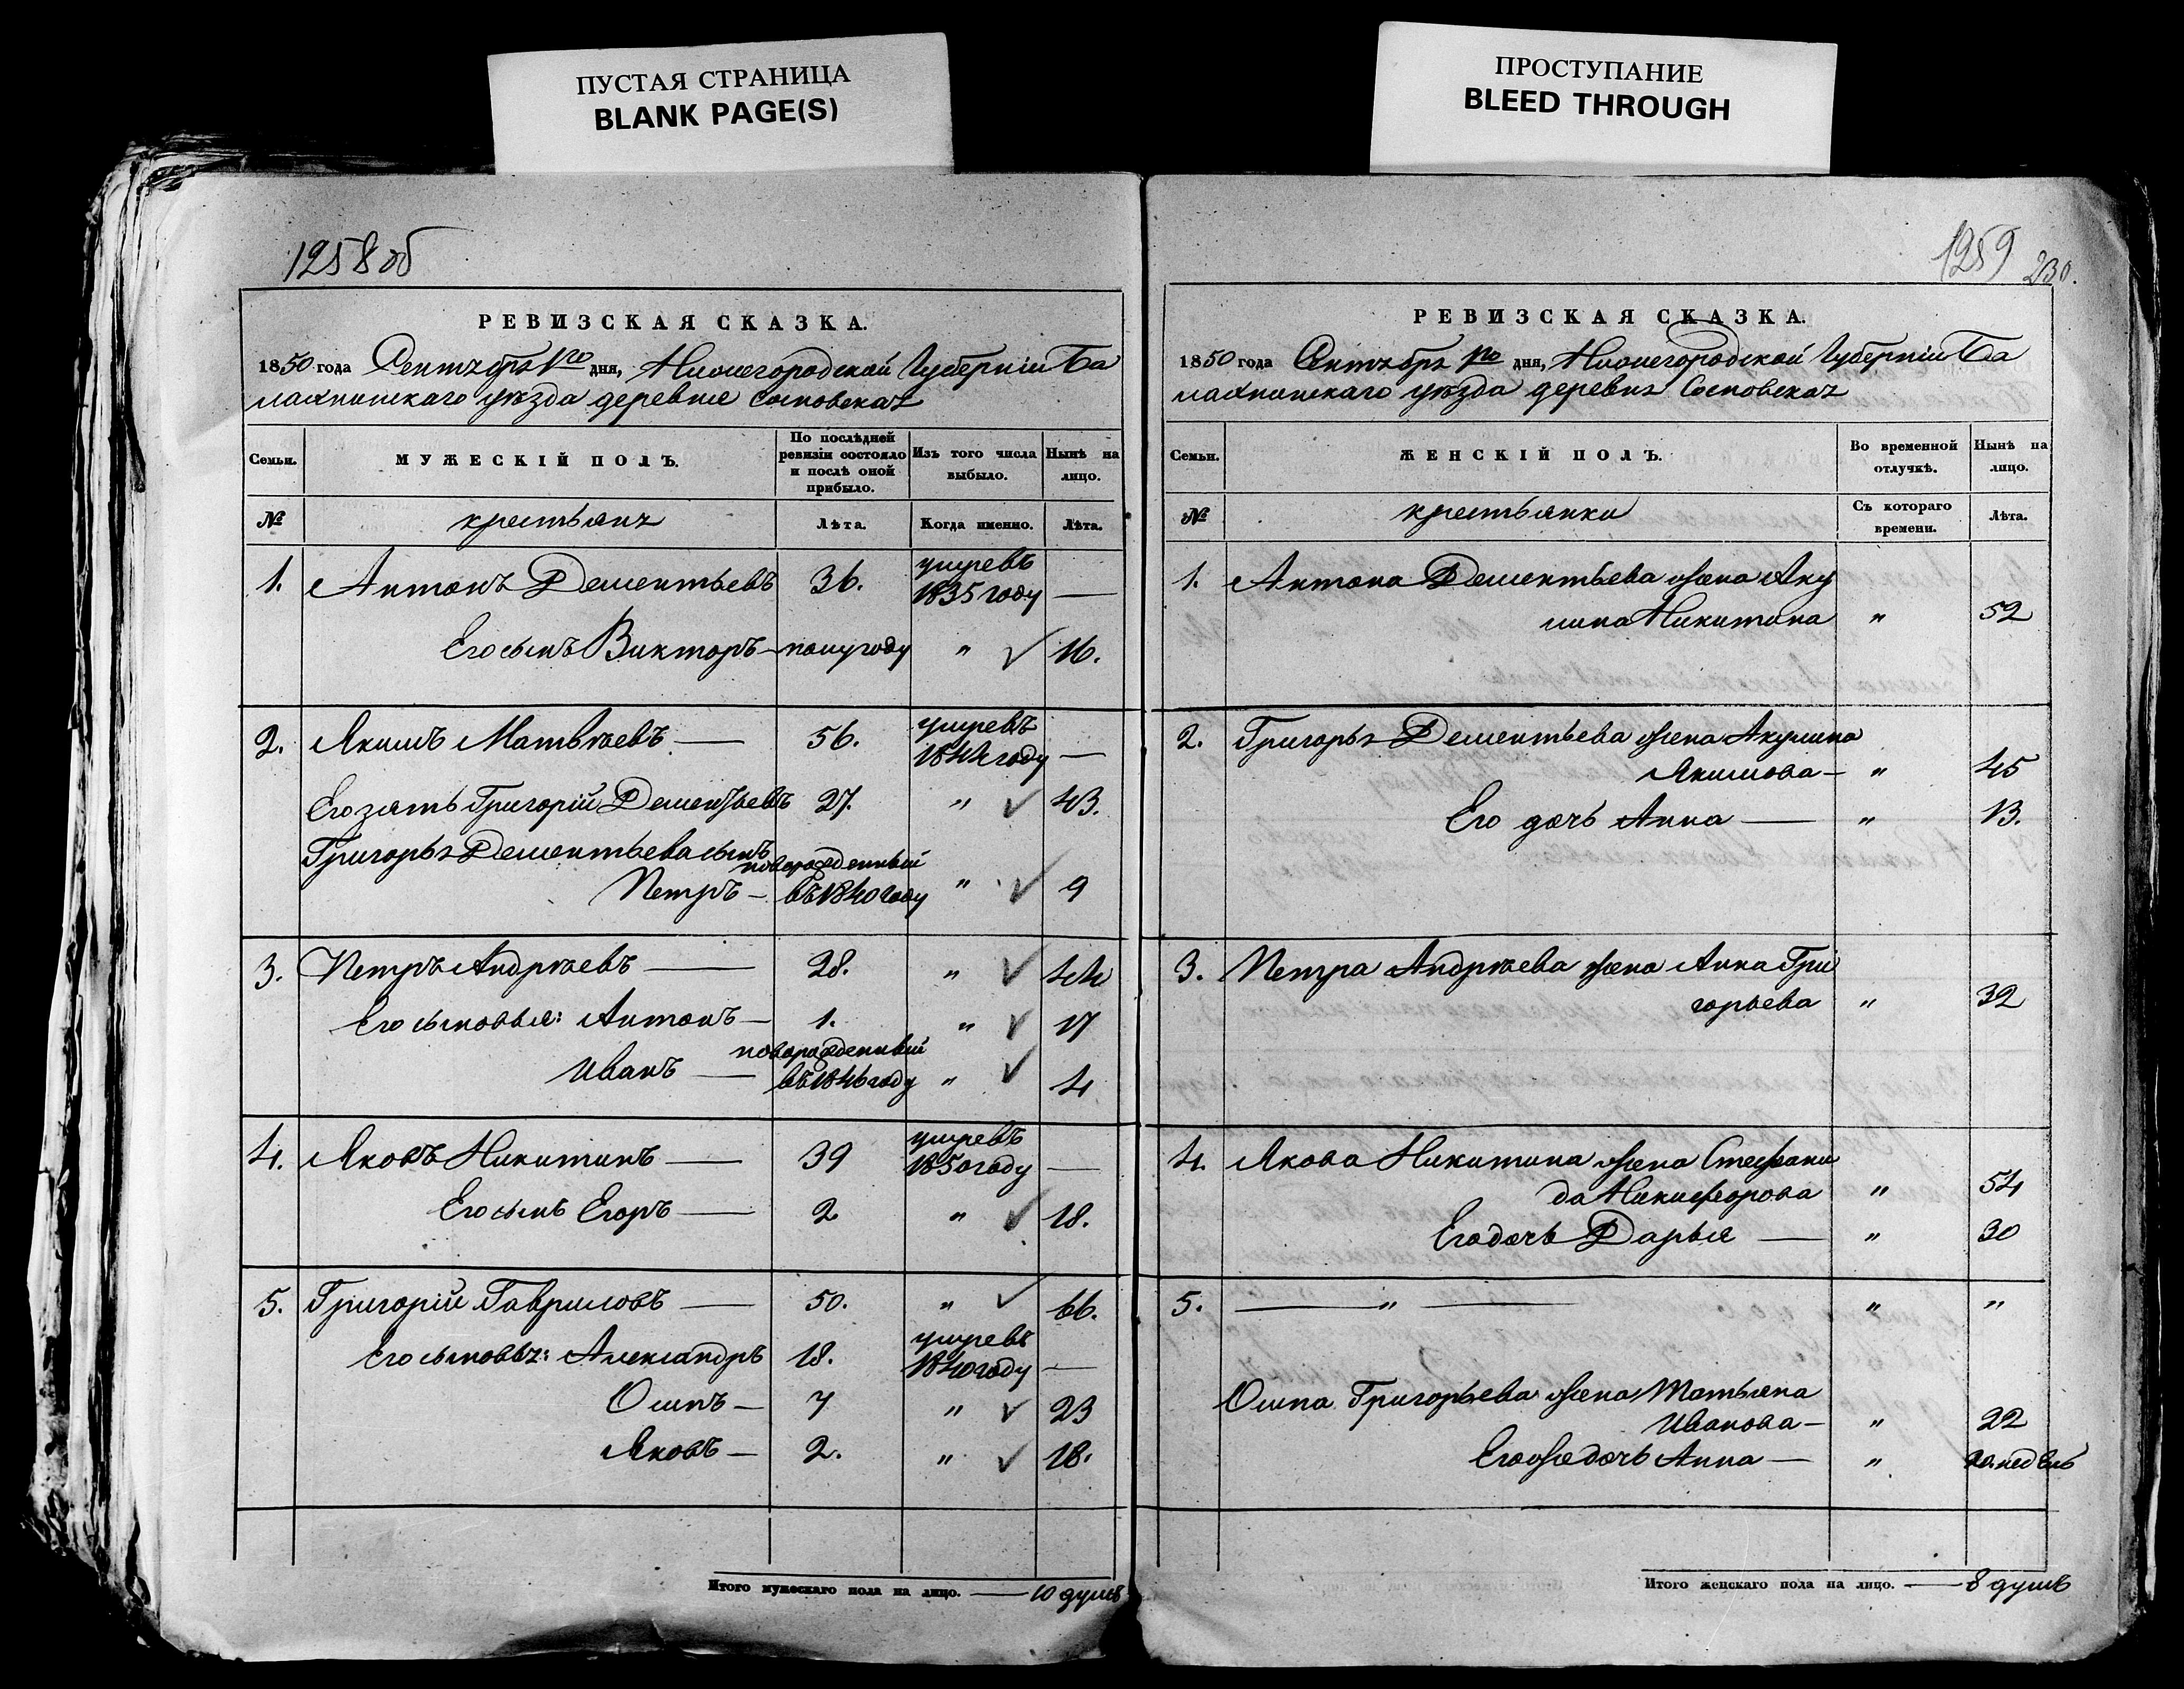 ПУСТАЯ СТРАНИЦА
BLANK PAGE(S)
ПРОСТУПАНИЕ
BLEED THROUGH
1258 об
РЕВИЗСКАЯ СКАЗКА.
1850 года Сентября 1го дня, Нижегородской Губерніи Ба
лахнинскаго уѣзда деревни Сосновская
Семьи. МУЖЕСКІЙ ПОЛЪ. По послѣдней ревизіи состояло и послѣ оной прибыло. Изъ того числа выбыло. Нынѣ на лицо.
№ крестьянъ Лѣта. Когда именно. Лѣта.
1. Антонъ Дементьевъ 36. умревъ 1835 году —
Его сынъ Викторъ — полугоду " 16.
2. Якимъ Матвѣевъ — 56. умревъ 1844 году —
Его зять Григорій Дементьевъ 27. " 43.
Григорья Дементьева сынъ
Петръ — новорожденный въ 1840 году " 9
3. Петръ Андрѣевъ — 28. " 44
Его сыновья: Антонъ — 1. " 17
Иванъ — новорожденный въ 1846 году " 4
4. Яковъ Никитинъ — 39 умревъ 1850 году —
Его сынъ Егоръ — 2 " 18.
5. Григорій Гавриловъ — 50. " 66.
Его сыновья: Александръ 18. умревъ 1840 году —
Осипъ — 7 " 23
Яковъ — 2. " 18.
Итого мужескаго пола на лицо. — 10 душъ
1259 230.
РЕВИЗСКАЯ СКАЗКА.
1850 года Сентября 1го дня, Нижегородской Губерніи Ба
лахнинскаго уѣзда деревня Сосновская
Семьи. ЖЕНСКІЙ ПОЛЪ. Во временной отлучкѣ. Нынѣ на лицо.
№ крестьянки Съ котораго времени. Лѣта.
1. Антона Дементьева жена Аку
лина Никитина " 52
2. Григорья Дементьева жена Акулина
Якимова — " 45
Его дочь Анна — " 13.
3. Петра Андрѣева жена Анна Гри
горьева " 32
4. Якова Никитина жена Стефани
да Никифорова " 54
Его дочь Дарья — " 30
5. — " — " "
Осипа Григорьева жена Татьяна
Иванова — " 22
Его же дочь Анна — " 20 недѣль
Итого женскаго пола на лицо. — 8 душъ